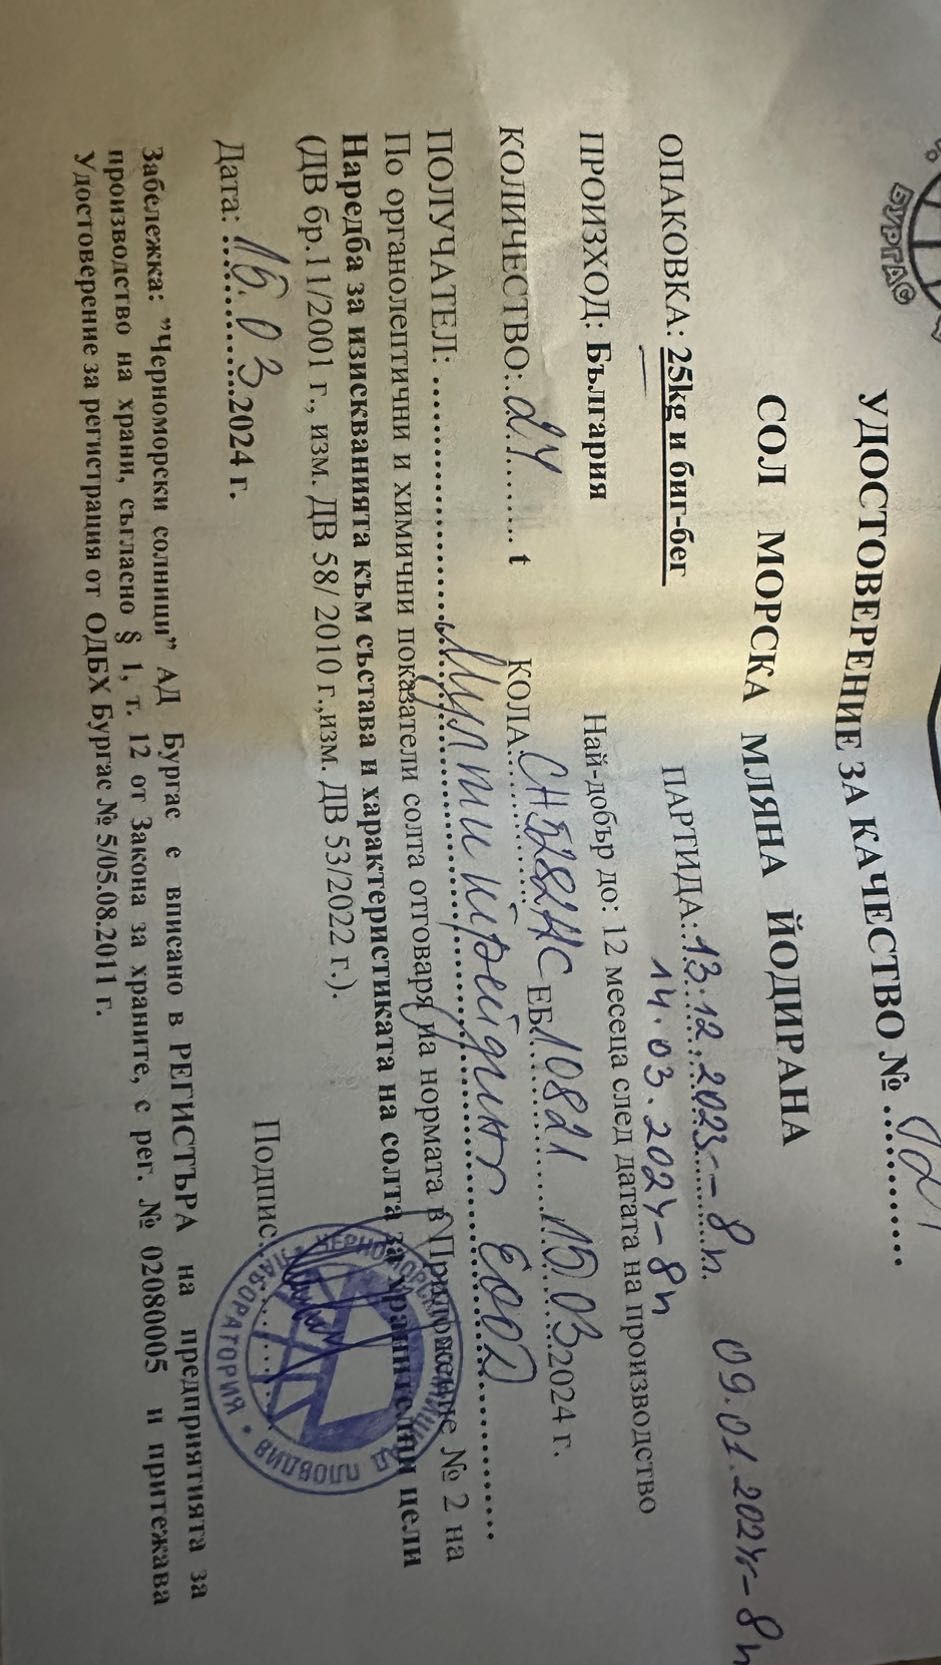 БУРГАС
УДОСТОВЕРЕНИЕ ЗА КАЧЕСТВО №
СОЛ МОРСКА МЛЯНА ЙОДИРАНА
ОПАКОВКА: 25kg и биг-бег ПАРТИДА: 13.12.2023 - 8п. 09.01.2024 - 8п
14.03.2024 - 8п
ПРОИЗХОД: България Най-добър до: 12 месеца след датата на производство
КОЛИЧЕСТВО: 24 t КОЛА: СН5282НС ЕВ10821 15.03.2024 г.
ПОЛУЧАТЕЛ: Мулти трейдинг ЕООД
По органолептични и химични показатели солта отговаря на нормата в Приложение № 2 на
Наредба за изискванията към състава и характеристиката на солта за хранителни цели
(ДВ бр.11/2001 г., изм. ДВ 58/ 2010 г.,изм. ДВ 53/2022 г.).
Дата: 15.03.2024 г. Подпис:
ЛАБОРАТОРИЯ * ПЛОВДИВ
Забележка: "Черноморски солници" АД Бургас е вписано в РЕГИСТЪРА на предприятията за
производство на храни, съгласно § 1, т. 12 от Закона за храните, с рег. № 02080005 и притежава
Удостоверение за регистрация от ОДБХ Бургас № 5/05.08.2011 г.